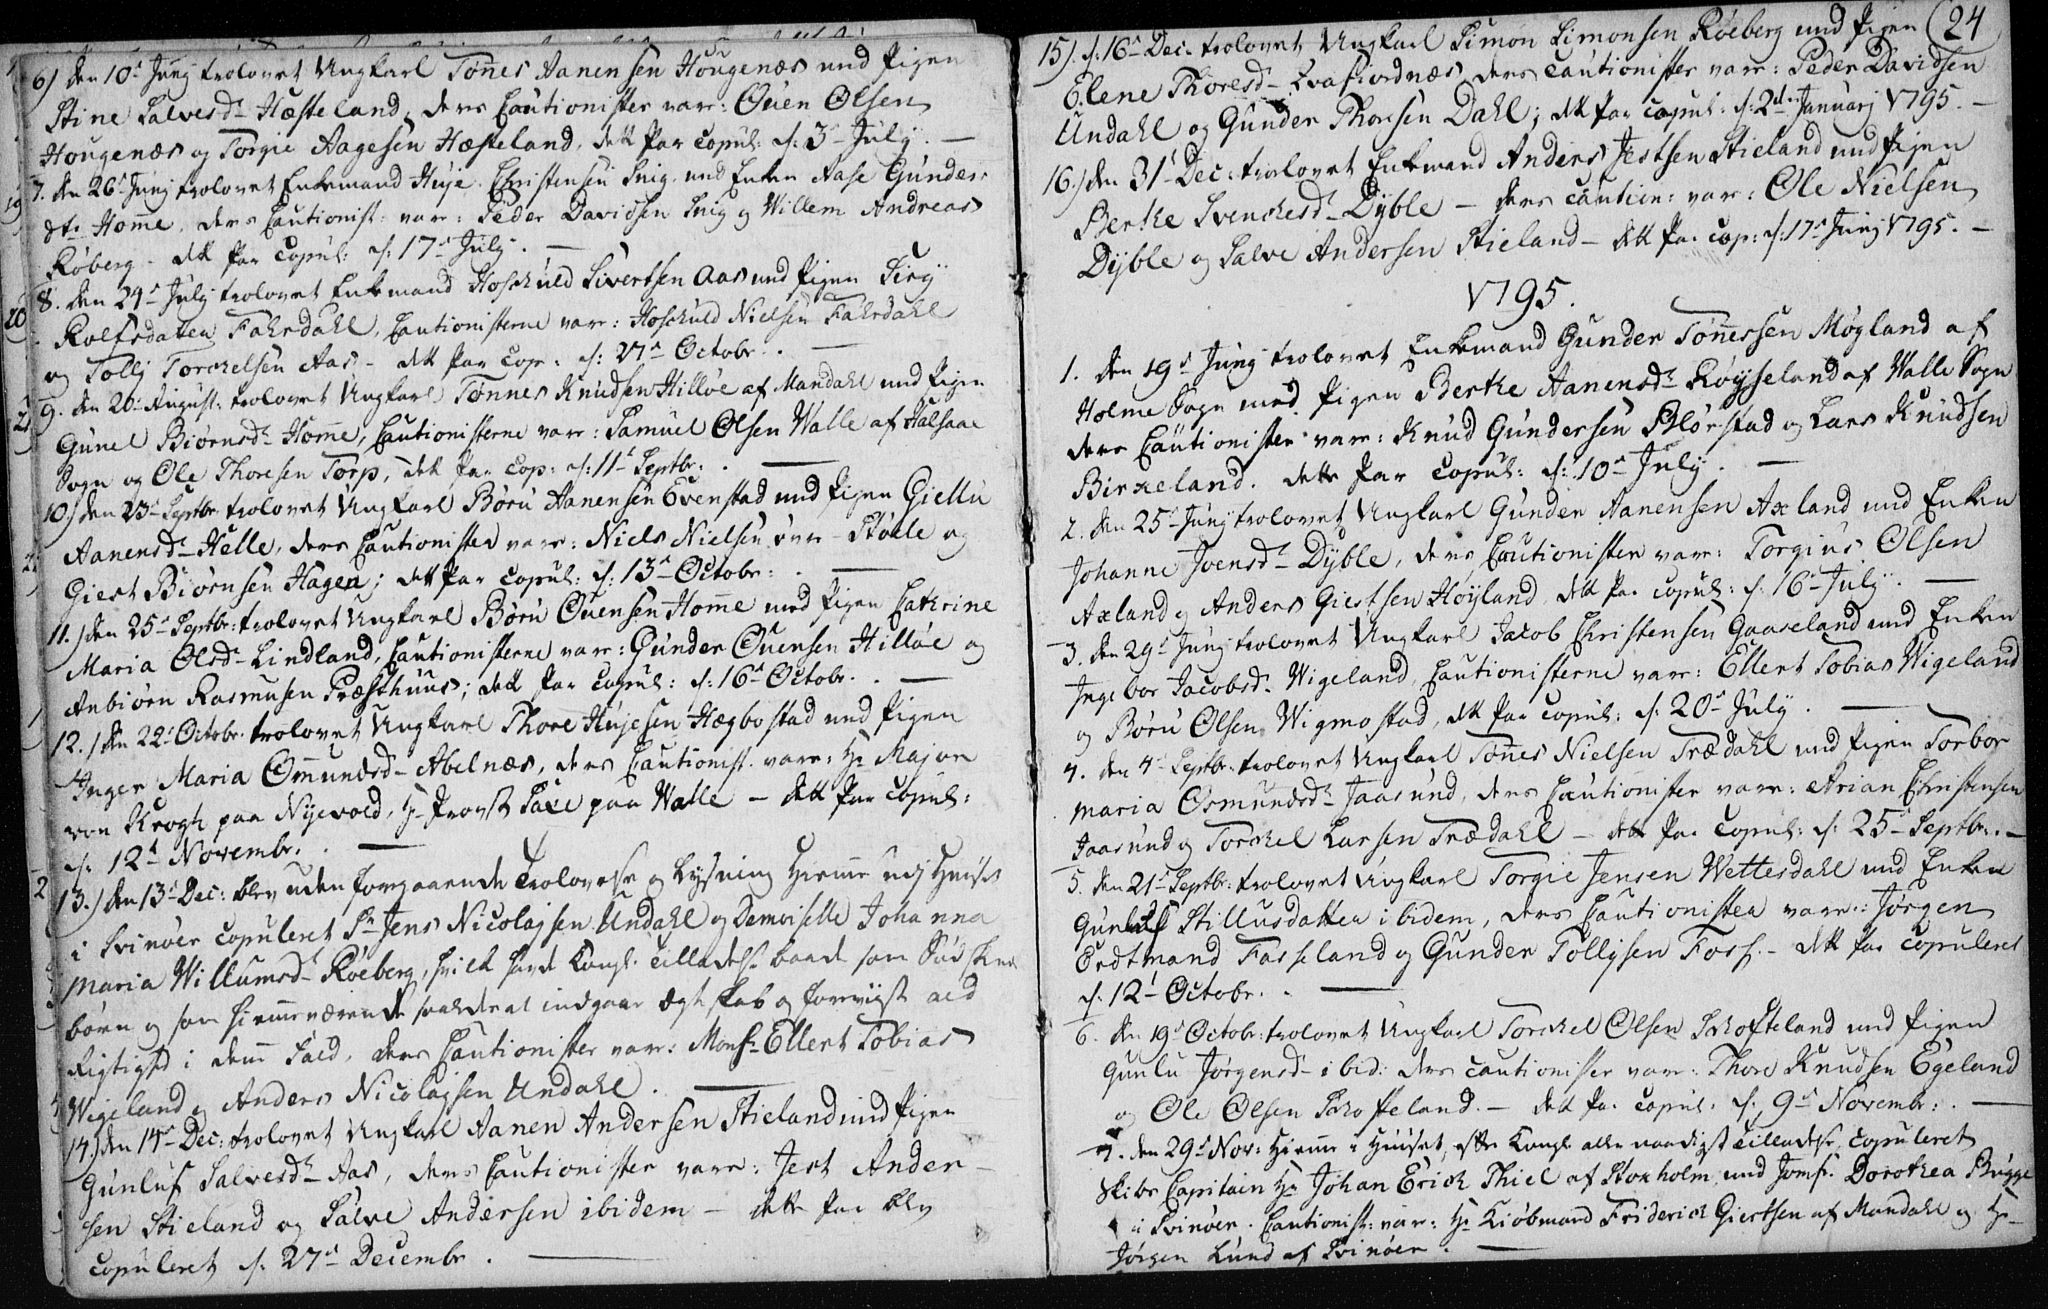 6) den 10d Junij trolovet Ungkarl Tönnes Aanensen Hougenæs med Pigen
Stine Salvesd- Hæsteland, deres Cautionister vare: Ouen Olsen
Hougenæs og Torgie Aagesen Hæsteland, dette Par copul: d: 3d July. —
7. den 26d Junij trolovet Enkemand Huje Christensen Snig med Enken Aase Gunders
dtr Homme, deres Cautionist: vare: Peder Davidsen Snig og Willem Andreas
Röberg - dette Par copul: d: 17d July. —
8. den 24d July trolovet Enkemand Hoskuld Sivertsen Aas med Pigen Sirij
Rolfsdatter Fahrdahl, Cautionisterne vare: Hoskuld Nielsen Fahrdahl
og Tollij Torckelsen Aas - dette Par cop: d: 27d Octobr. —
9. den 20d August: trolovet Ungkarl Tönnes Knudsen Hillöe af Mandahl med Pigen
Gunel Biörnsdr Homme, Cautionisterne vare: Samuel Olsen Walle af Halsaae
Sogn og Ole Thoresen Torp, dette Par cop: d: 11d Septbr: . —
10.) den 23d Septbr trolovet Ungkarl Böru Aanensen Evenstad med Pigen Giellu
Aanensd- Helle, deres Cautionister vare: Niels Nielsen övre - Stölle og
Giert Biörnsen Hagen; dette Par copul: d: 13d Octobr: . —
11.) den 25d Septbr: trolovet Ungkarl Böru Ouensen Homme med Pigen Cathrine
Maria Olsd- Lindland, Cautionisterne vare: Gunder Ouensen Hillöe og
Anbiörn Rasmusen Præsthuus; dette Par copul: d: 16d Octobr. . —
12.) den 22d Octobr. trolovet Ungkarl Thore Hujesen Hægbostad med Pigen
Inger Maria Omundsd- Abelnæs, deres Cautionist. vare: Hr Major
von Krogh paa Nijevold, Hr Provst Saxe paa Walle — dette Par copul:
d: 12d Novembr. . —
13.) den 13d Dec: blev uden foregaaende Trolovelse og Lysning hiemme udj Huuset
i Svinöer copuleret Sr Jens Nicolajsen Undahl og Demoiselle Johanna
Maria Willumsdr Roeberg, hvilk havde Kongl: Tilladelse baade som Södskende
börn og som hiemmeværende saaledes at indgaae Ægteskab og foreviist all
Rigtighed i dem Fald, deres Cautionister vare: Monsr Ellert Tobias
Wigeland og Anders Nicolajsen Undahl. —
14.) den 14d Dec: trolovet Ungkarl Aanen Andersen Stieland med Pigen
Gunluf Salvesdr Aas, deres Cautionister vare: Jest Ander-
sen Stieland og Salve Andersen ibidem - dette Par blev
copuleret d: 27d Decembr . —
24
15). d: 16d Dec. trolovet Ungkarl Simon Simonsen Röeberg med Pigen
Elene Thoresd- Svafiordnæs, deres Cautionister vare: Peder Davidsen
Undahl og Gunder Thorsen Dahl; dette Par copul: d: 2d Januarj 1795. —
16.) den 31d Dec: trolovet Enkemand Anders Jestsen Stieland med Pigen
Berthe Svenchesd- Dyble — deres Caution: vare: Ole Nielsen
Dyble og Salve Andersen Stieland — dette Par cop: d: 17d Junij 1795. —
1795.
1. den 19d Junij trolovet Enkemand Gunder Tönnessen Mögland af
Holme Sogn med Pigen Berthe Aanensdr Röyseland af Walle Sogn
deres Cautionister vare: Knud Gundersen Blörstad og Lars Knudsen
Birkeland. dette Par copul: d: 10d July. —
2. den 25d Junij trolovet Ungkarl Gunder Aanensen Axland med Enken
Johanne Ivensdr Dyble, deres Cautionister vare: Torgius Olsen
Axland og Anders Giertsen Höyland, dette Par copul: d: 16d July. —
3. den 29d Junij trolovet Ungkarl Jacob Christensen Gaaseland med Enken
Ingebor Jacobsd. Wigeland, Cautionisterne vare: Ellert Tobias Wigeland
og Böru Olsen Wigmostad, dette Par copul: d: 20d July. —
4. den 4d Septbr: trolovet Ungkarl Tönnes Nielsen Trædahl med Pigen Torbor
Maria Osmundsdr Jaasund, deres Cautionister vare: Arian Christensen
Jaasund og Torckel Larsen Trædahl — dette Par copul: d: 25d Septbr. —
5. den 21d Septbr: trolovet Ungkarl Torgie Jensen Wettesdahl med Enken
Gunluf Stillusdatter ibidem, deres Cautionister vare: Jörgen
Erdtmand Fasseland og Gunder Tollijsen Foss. - dette Par copuleret
d: 12d Octobr. . —
6. den 19d Octobr: trolovet Ungkarl Torckel Olsen Skofteland med Pigen
Gunlu Jörgensd- ibid: deres Cautionister vare: Thore Knudsen Egeland
og Ole Olsen Skofteland. — dette Par copul: d. 9d Novembr: . —
7. den 29d Nov: hiemme i Huuset, efter Kongl. allernaadigst Tilladelse, copuleret
Skibs Capitain Hr Johan Erich Thiel af Stokholm med Jomfr. Dorothea Brigge
i Svinöer. Cautionist: var: Hr Kiöbmand Friderich Giertsen af Mandahl og Hr
Jörgen Lund af Svinöer. —